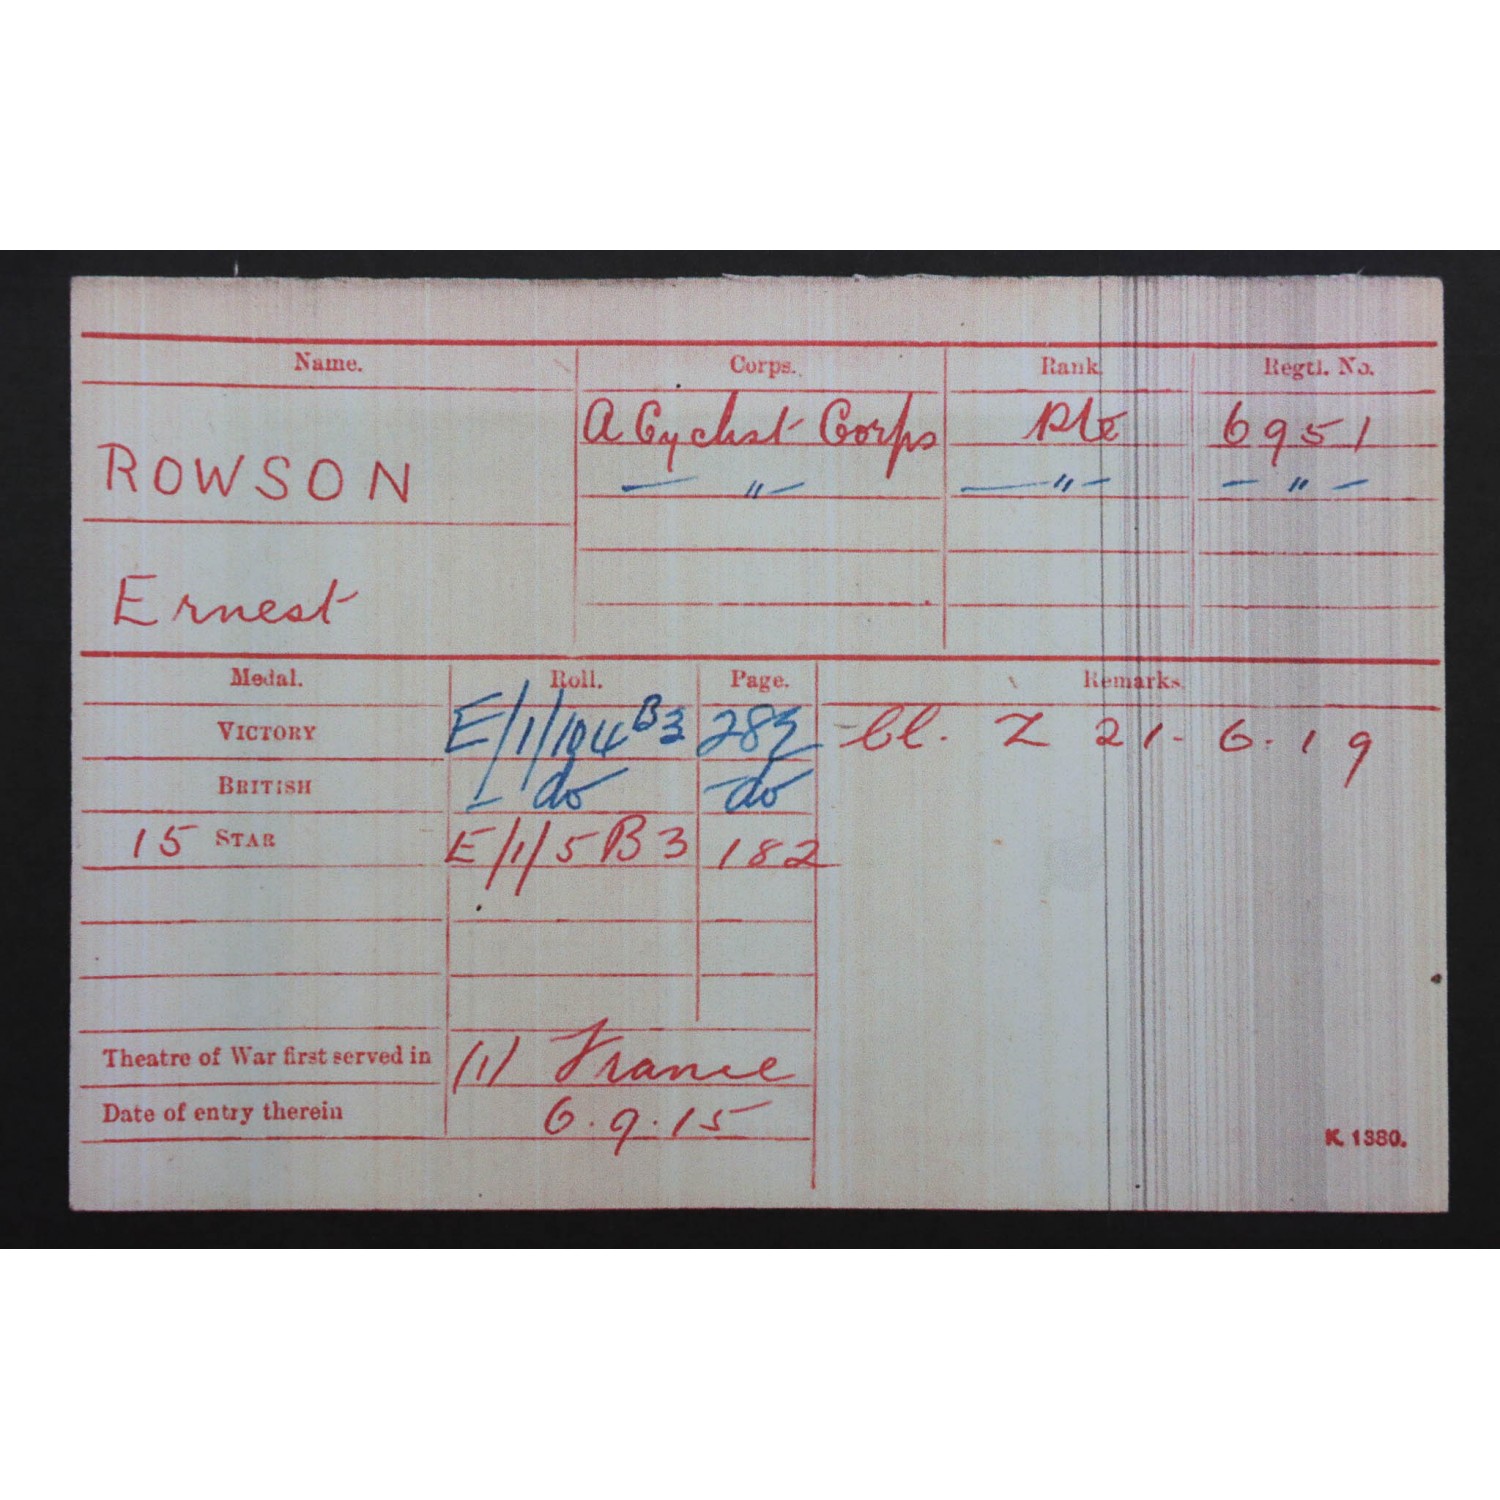 Name. Corps. Rank. Regtl. No.
A Cyclist Corps Pte 6951
ROWSON — " — — " — — " —
Ernest
Medal. Roll. Page. Remarks.
VICTORY E/1/104 B3 283 Cl. Z 21-6.19
BRITISH — do — do
15 STAR E/1/5 B3 182
Theatre of War first served in (1) France
Date of entry therein 6.9.15
K. 1380.